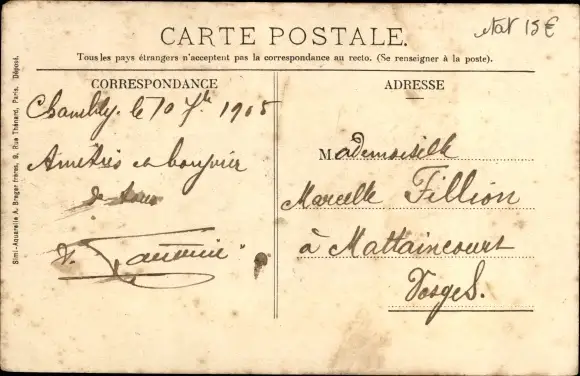 état 15€
CARTE POSTALE.
Tous les pays étrangers n'acceptent pas la correspondance au recto. (Se renseigner à la poste).
CORRESPONDANCE
Chambly, le 10 7bre 1905
Amitiés et bonjour
de tous
ADRESSE
Mademoiselle
Marcelle Fillion
à Mattaincourt
Vosges.
Simi-Aquarelle A. Breger frères, 9, Rue Thénard, Paris. Déposé.